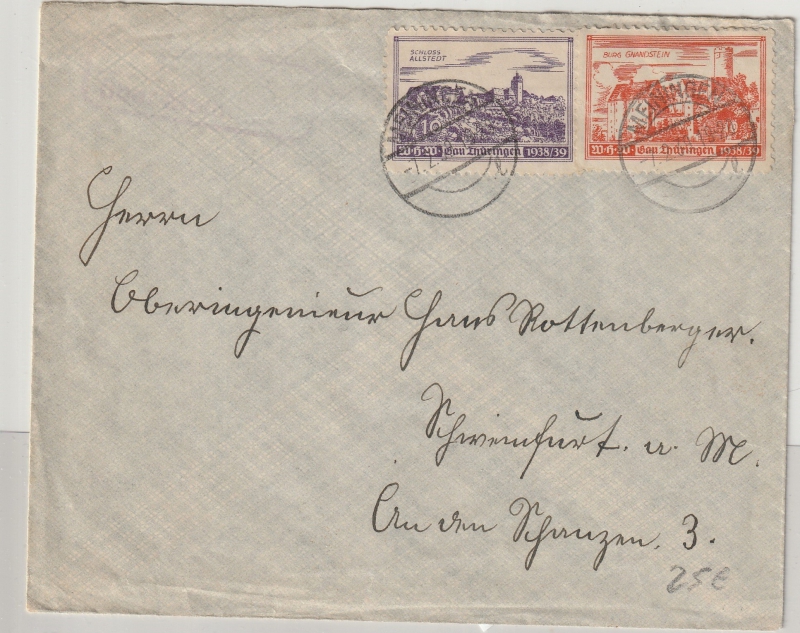 SCHLOSS
ALLSTEDT
W.H.W. Gau Thüringen 1938/39
BURG GNANDSTEIN
W.H.W. Gau Thüringen 1938/39
MEININGEN
-7.2.
Herrn
Oberingenieur Hans Rottenberger.
Schweinfurt. a. M.
An den Schanzen. 3.
25€